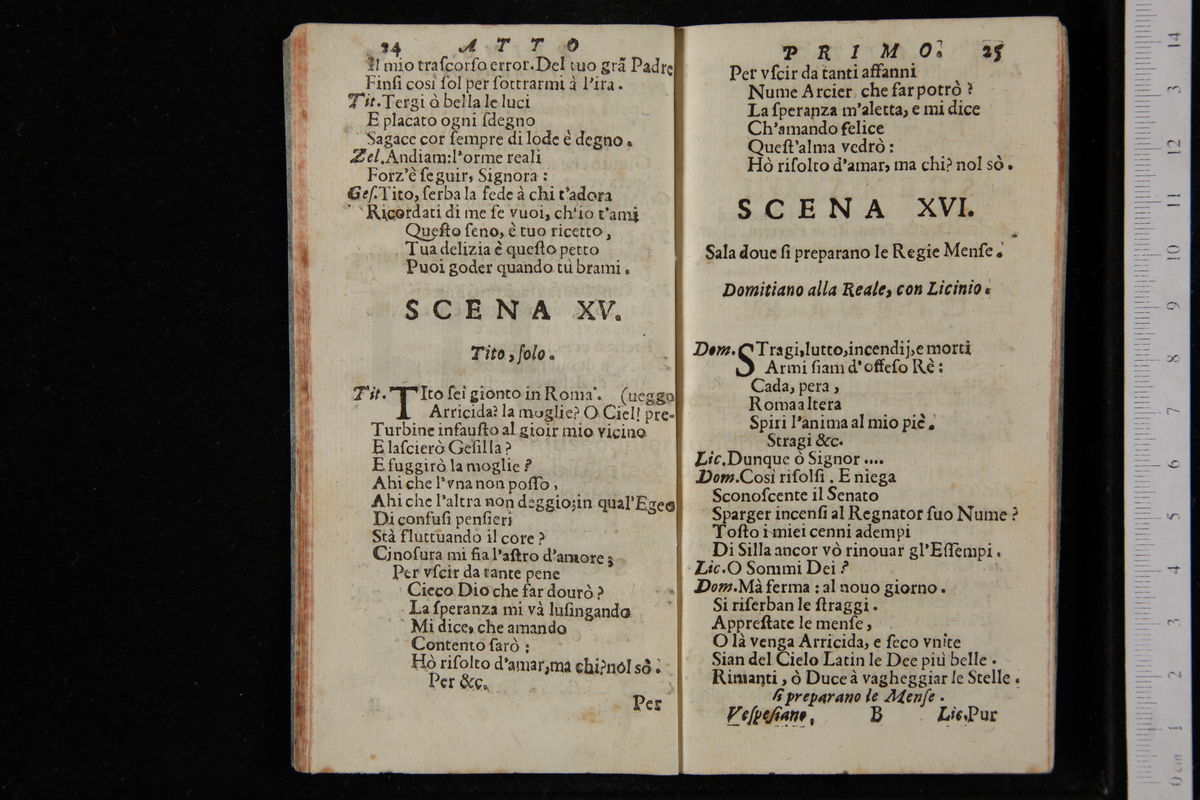 24 ATTO
Il mio traſcorſo error. Del tuo grã Padre
Finſi così ſol per ſottrarmi à l'ira.
Tit. Tergi ò bella le luci
E placato ogni ſdegno
Sagace cor ſempre di lode è degno.
Zel. Andiam: l'orme reali
Forz'è ſeguir, Signora:
Geſ. Tito, ſerba la fede à chi t'adora
Ricordati di me ſe vuoi, ch'io t'ami
Queſto ſeno, è tuo ricetto,
Tua delizia è queſto petto
Puoi goder quando tù brami.
SCENA XV.
Tito, ſolo.
Tit. TIto ſei gionto in Roma. (ueggo
Arricida? la moglie? O Ciel! pre-
Turbine infauſto al gioir mio vicino
E laſcierò Geſilla?
E fuggirò la moglie?
Ahi che l'vna non poſſo,
Ahi che l'altra non deggio; in qual'Egeo
Di confuſi penſieri
Stà fluttuando il core?
Cinoſura mi ſia l'aſtro d'amore;
Per vſcir da tante pene
Cieco Dio che far dourò?
La ſperanza mi và luſingando
Mi dice, che amando
Contento ſarò:
Hò riſolto d'amar, ma chi? nol sò.
Per &c.
Per
PRIMO. 25
Per vſcir da tanti affanni
Nume Arcier che far potrò?
La ſperanza m'aletta, e mi dice
Ch'amando felice
Queſt'alma vedrò:
Hò riſolto d'amar, ma chi? nol sò.
SCENA XVI.
Sala doue ſi preparano le Regie Menſe.
Domitiano alla Reale, con Licinio.
Dom. STragi, lutto, incendij, e morti
Armi ſiam d'offeſo Rè:
Cada, pera,
Roma altera
Spiri l'anima al mio piè.
Stragi &c.
Lic. Dunque ò Signor ....
Dom. Così riſolſi. E niega
Sconoſcente il Senato
Sparger incenſi al Regnator ſuo Nume?
Toſto i miei cenni adempi
Di Silla ancor vò rinouar gl'Eſſempi.
Lic. O Sommi Dei?
Dom. Mà ferma: al nouo giorno.
Si riſerban le ſtraggi.
Appreſtate le menſe,
O là venga Arricida, e ſeco vnite
Sian del Cielo Latin le Dee più belle.
Rimanti, ò Duce à vagheggiar le Stelle.
ſi preparano le Menſe.
Veſpeſiano. B Lic. Pur
14
13
12
11
10
9
8
7
6
5
4
3
2
1
0 cm